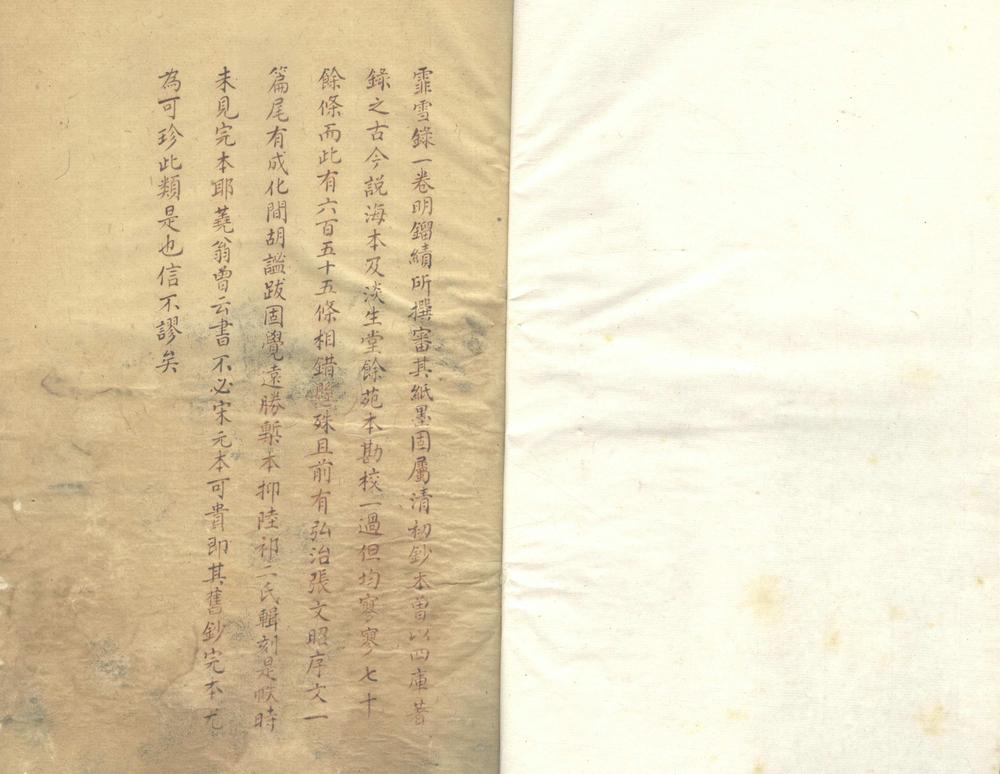 霏雪錄一卷明鎦績所撰審其紙墨固屬清初鈔本曾以四庫著
錄之古今說海本及淡生堂餘苑本勘校一過但均寥寥七十
餘條而此有六百五十五條相錯懸殊且前有弘治張文昭序文一
篇尾有成化間胡謐跋固覺遠勝槧本抑陸祁二氏輯刻是帙時
未見完本耶蕘翁曾云書不必宋元本可貴即其舊鈔完本尤
為可珍此類是也信不謬矣